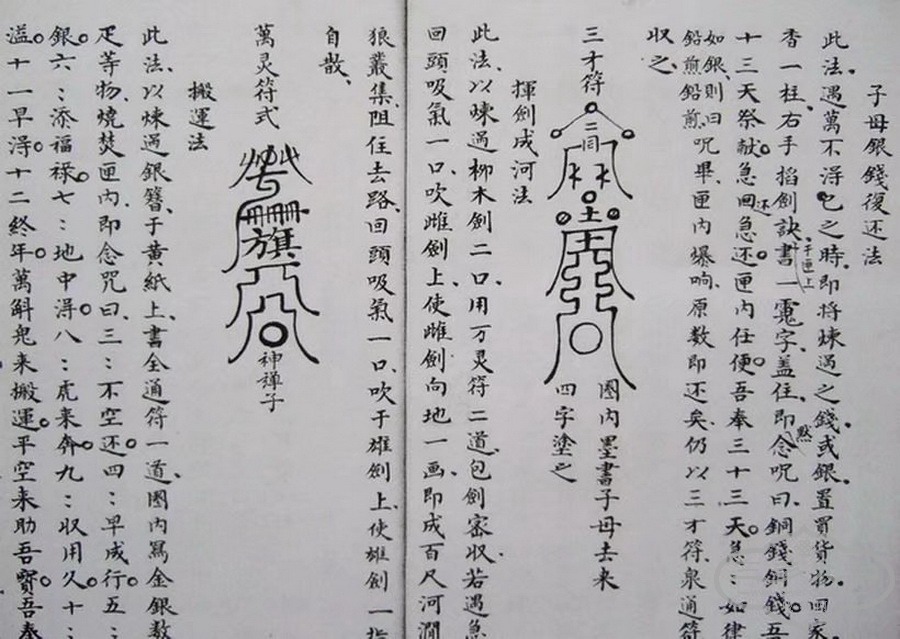 子母銀錢復还法
此法、遇萬不淂已之時、即将煉過之錢、或銀、置買貨物、回家
香一柱、右手掐劍訣、書一靈字、盖住、即念咒曰、銅錢銅錢。吾
于匣上
默
十三天祭献。急回急还。匣内任便。吾奉三十三天。急：如律
还
如銀、則曰
鉛煎鉛煎、
咒畢、匣内爆响、原数即还矣、仍以三才符、泉通符
収之、
三才符
二同
土
圈内墨書子母去来
四字塗之
揮劍成河法
此法、以煉過柳木劍二口、用万灵符二道、包劍密収、若遇急
回頭吸氣一口、吹雌劍上、使雌劍向地一画、即成百尺河澗
狼叢集、阻住去路、回頭吸氣一口、吹于雄劍上、使雄劍一指
自散、
萬灵符式
旗
神禅子
搬運法
此法、以煉過銀簪、于黄紙上、書全通符一道、圈内寫金銀数
疋等物、燒焚匣内、即念咒曰、三：不空还。四：早成行。五：
銀。六：添福禄。七：地中淂。八：虎来奔。九：収用久。十：
溢。十一早淂。十二终年。萬斛鬼来搬運。平空来助吾寳。吾奉